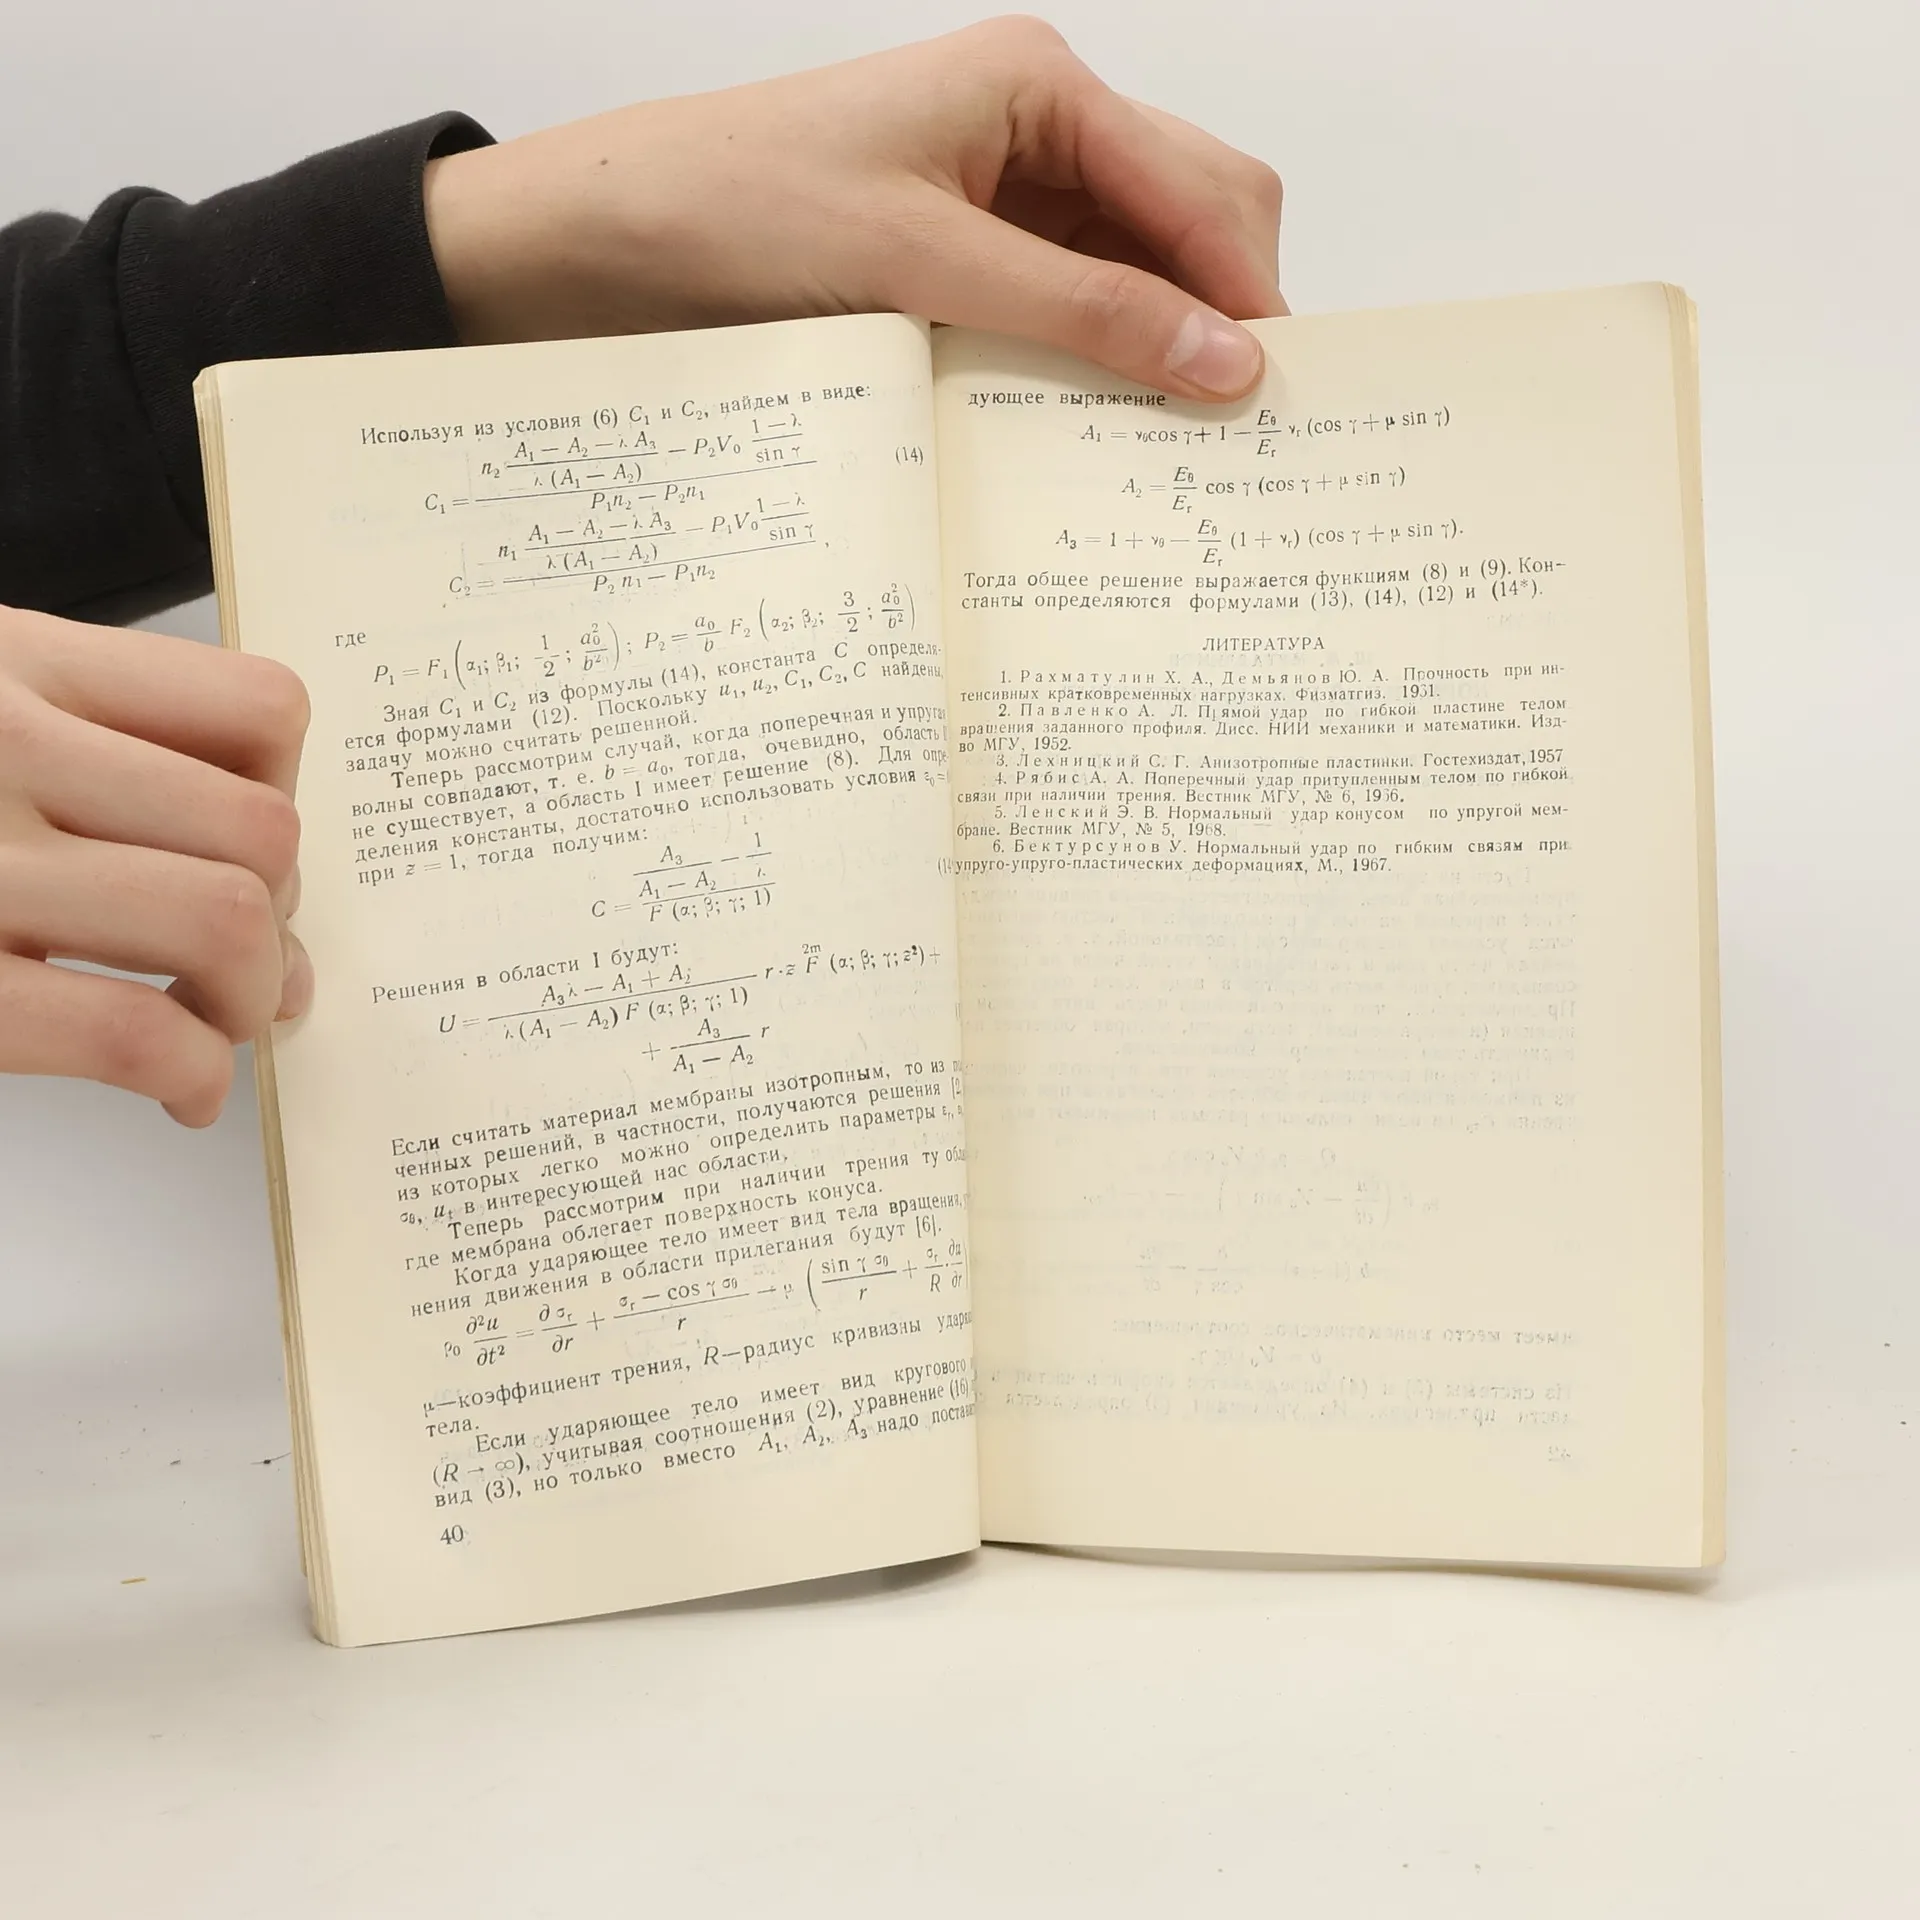 Используя из условия (6) C₁ и C₂, найдем в виде:
C₁ = (n₂ (A₁ — A₂ — λ A₃)/(λ (A₁ — A₂)) — P₂V₀ (1 — λ)/(sin γ))/(P₁n₂ — P₂n₁) (14)
C₂ = (n₁ (A₁ — A₂ — λ A₃)/(λ (A₁ — A₂)) — P₁V₀ (1 — λ)/(sin γ))/(P₂ n₁ — P₁n₂),
где
P₁ = F₁ (α₁; β₁; 1/2; a₀²/b²); P₂ = a₀/b F₂ (α₂; β₂; 3/2; a₀²/b²)
Зная C₁ и C₂ из формулы (14), константа C определя-
ется формулами (12). Поскольку u₁, u₂, C₁, C₂, C найдены,
задачу можно считать решенной.
Теперь рассмотрим случай, когда поперечная и упругая
волны совпадают, т. е. b = a₀, тогда, очевидно, область
не существует, а область I имеет решение (8). Для опре-
деления константы, достаточно использовать условия
при z = 1, тогда получим:
C = (A₃/(A₁ — A₂) — 1/λ)/(F (α; β; γ; 1))
Решения в области I будут:
U = (A₃λ — A₁ + A₂)/(λ (A₁ — A₂) F (α; β; γ; 1)) r·z^2m F (α; β; γ; z²) +
+ A₃/(A₁ — A₂) r
Если считать материал мембраны изотропным, то из
ченных решений, в частности, получаются решения [2
из которых легко можно определить параметры εᵣ,
σθ, u₁ в интересующей нас области.
Теперь рассмотрим при наличии трения ту
где мембрана облегает поверхность конуса.
Когда ударяющее тело имеет вид тела вращения,
нения движения в области прилегания будут [6].
ρ₀ ∂²u/∂t² = ∂σᵣ/∂r + (σᵣ — cos γ σθ)/r + μ (sin γ σθ/r + σᵣ/R · ∂u/∂r)
μ—коэффициент трения, R—радиус кривизны
тела.
Если ударяющее тело имеет вид кругового
(R → ∞), учитывая соотношения (2), уравнение (16)
вид (3), но только вместо A₁, A₂, A₃ надо
40
дующее выражение
A₁ = νθcos γ + 1 — Eθ/Eᵣ νᵣ (cos γ + μ sin γ)
A₂ = Eθ/Eᵣ cos γ (cos γ + μ sin γ)
A₃ = 1 + νθ — Eθ/Eᵣ (1 + νᵣ) (cos γ + μ sin γ).
Тогда общее решение выражается функциям (8) и (9). Кон-
станты определяются формулами (13), (14), (12) и (14*).
ЛИТЕРАТУРА
1. Рахматулин Х. А., Демьянов Ю. А. Прочность при ин-
тенсивных кратковременных нагрузках. Физматгиз. 1931.
2. Павленко А. Л. Прямой удар по гибкой пластине телом
вращения заданного профиля. Дисс. НИИ механики и математики. Изд-
во МГУ, 1952.
3. Лехницкий С. Г. Анизотропные пластинки. Гостехиздат, 1957
4. Рябис А. А. Поперечный удар притупленным телом по гибкой
связи при наличии трения. Вестник МГУ, № 6, 1966.
5. Ленский Э. В. Нормальный удар конусом по упругой мем-
бране. Вестник МГУ, № 5, 1968.
6. Бектурсунов У. Нормальный удар по гибким связям при
упруго-упруго-пластических деформациях, М., 1967.